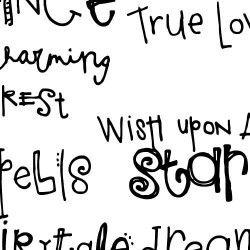 True Lo
arming
REST
WisH upon A
pells
StaR
irytale dream